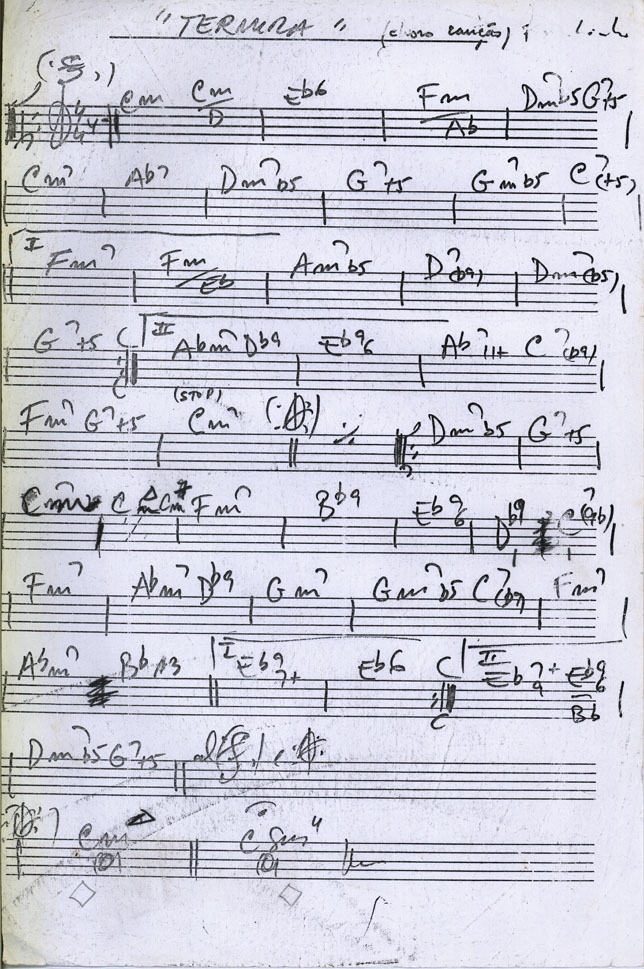 "TERNURA" (choro canção)
Cm Cm/D Eb6 Fm/Ab Dm7b5 G7+5
Cm7 Ab7 Dm7b5 G7+5 Gm7b5 C7(+5)
I Fm7 Fm7/Eb Am7b5 D7(b9) Dm7(b5)
G7+5 II Abm7 Db9 Eb96 Ab711+ C7(b9)
(STOP)
Fm7 G7+5 Cm7 Dm7b5 G7+5
Fm7 Bb9 Eb96 Db9
Fm7 Abm7 Db9 Gm7 Gm7b5 C7(b9) Fm7
Abm7 I Eb97+ Eb6 II Eb7+9 Eb96/Bb
Dm7b5 G7+5
Cm C Sus4